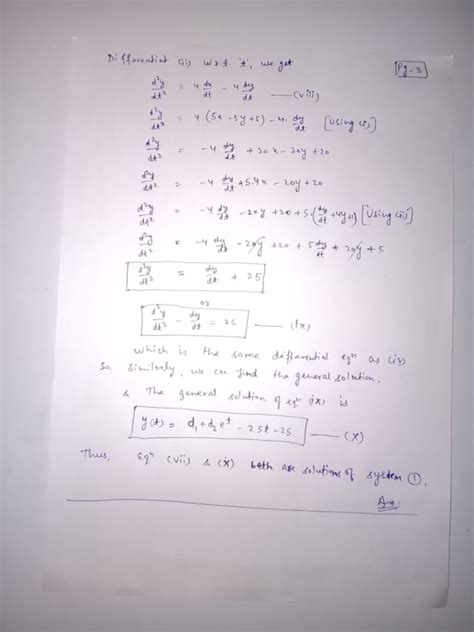 Differentiat (ii) w.r.t. 't', we get
Pg-3
d²y/dt² = 4 dx/dt - 4 dy/dt —(viii)
d²y/dt² = 4 (5x - 5y + 5) - 4. dy/dt [Using (i)]
d²y/dt² = -4 dy/dt + 20x - 20y + 20
d²y/dt² = -4 dy/dt + 5.4x - 20y + 20
d²y/dt² = -4 dy/dt - 20y + 20 + 5.(dy/dt + 4y + 1) [Using (ii)]
d²y/dt² = -4 dy/dt - 20y + 20 + 5 dy/dt + 20y + 5
d²y/dt² = dy/dt + 25
or
d²y/dt² - dy/dt = 25 —(ix)
Which is the same differential eqⁿ as (iv)
So, similarly, we can find the general solution.
& The general solution of eqⁿ (ix) is
y(t) = d₁ + d₂eᵗ - 25t - 25 —(x)
Thus, eqⁿ (vii) & (x) both are solutions of system ①.
Ans.